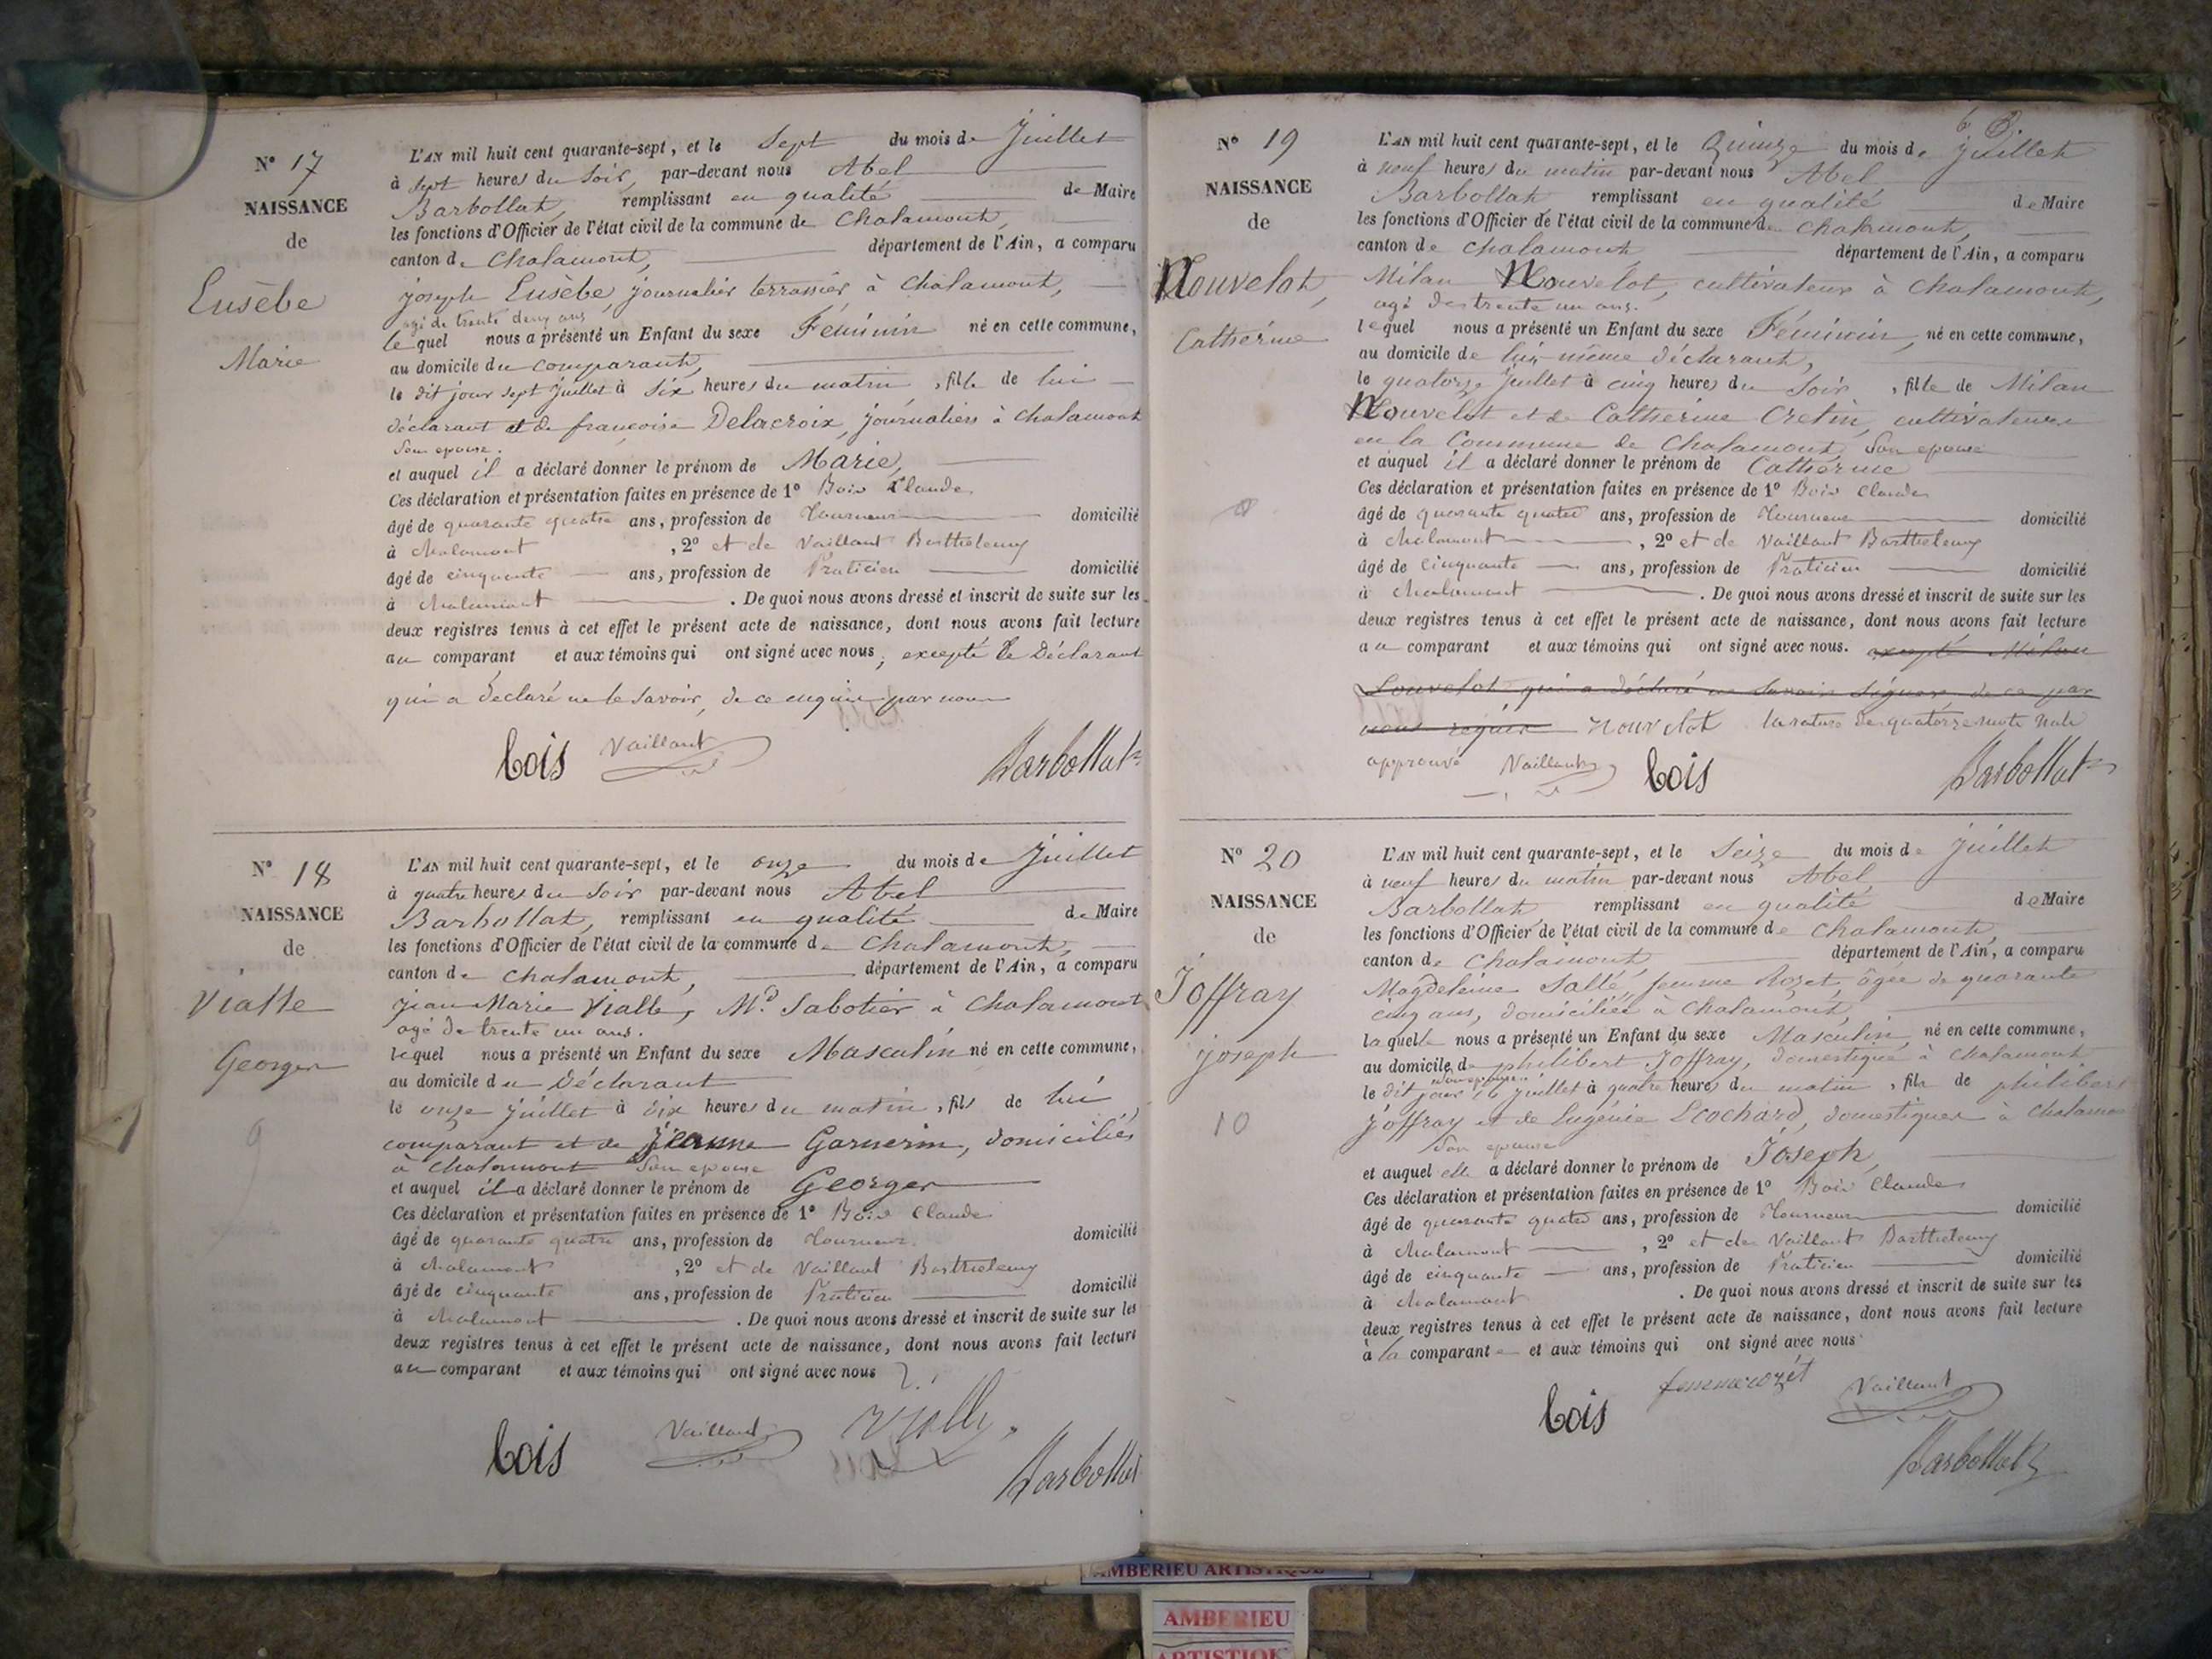 N° 17
NAISSANCE
de
Eusèbe
Marie
L'AN mil huit cent quarante-sept, et le Sept du mois de Juillet
à sept heures du Soir, par-devant nous Abel
Barbollat, remplissant en qualité de Maire
les fonctions d'Officier de l'état civil de la commune de Chalamont,
canton de Chalamont, département de l'Ain, a comparu
joseph Eusèbe, journalier terrassier à Chalamont,
agé de trente deux ans
lequel nous a présenté un Enfant du sexe Féminin né en cette commune,
au domicile du comparant,
le dit jour sept Juillet à Six heures du matin, fille de lui
déclarant et de françoise Delacroix, journaliers à Chalamont
Son epouse.
et auquel il a déclaré donner le prénom de Marie,
Ces déclaration et présentation faites en présence de 1° Bois Claude
âgé de quarante quatre ans, profession de Tourneur domicilié
à chalamont, 2° et de Vaillant Barthelemy
âgé de cinquante ans, profession de Praticien domicilié
à chalamont. De quoi nous avons dressé et inscrit de suite sur les
deux registres tenus à cet effet le présent acte de naissance, dont nous avons fait lecture
au comparant et aux témoins qui ont signé avec nous, excepté le Déclarant
qui a déclaré ne le savoir, de ce enquis par nous
bois Vaillant Barbollat
N° 18
NAISSANCE
de
Vialle
Georges
9
L'AN mil huit cent quarante-sept, et le onze du mois de Juillet
à quatre heures du Soir par-devant nous Abel
Barbollat, remplissant en qualité de Maire
les fonctions d'Officier de l'état civil de la commune de Chalamont,
canton de Chalamont, département de l'Ain, a comparu
jean Marie Vialle, Md. Sabotier à Chalamont
agé de trente un ans.
lequel nous a présenté un Enfant du sexe Masculin né en cette commune,
au domicile du Déclarant
le onze juillet à dix heures du matin, fils de lui
comparant et de jeanne Garnerin, domiciliés
à Chalamont Son epouse
et auquel il a déclaré donner le prénom de Georges
Ces déclaration et présentation faites en présence de 1° Bois Claude
âgé de quarante quatre ans, profession de Tourneur domicilié
à chalamont, 2° et de Vaillant Barthelemy
âgé de cinquante ans, profession de Praticien domicilié
à chalamont. De quoi nous avons dressé et inscrit de suite sur les
deux registres tenus à cet effet le présent acte de naissance, dont nous avons fait lecture
au comparant et aux témoins qui ont signé avec nous
bois Vaillant Vialle Barbollat
N° 19
NAISSANCE
de
Nouvelot,
Catherine
L'AN mil huit cent quarante-sept, et le Quinze du mois de Juillet
à neuf heures du matin par-devant nous Abel
Barbollat remplissant en qualité de Maire
les fonctions d'Officier de l'état civil de la commune de Chalamont,
canton de Chalamont département de l'Ain, a comparu
Milan Nouvelot, cultivateur à Chalamont,
agé de trente un ans.
lequel nous a présenté un Enfant du sexe Féminin, né en cette commune,
au domicile de lui-même déclarant,
le quatorze Juillet à cinq heures du Soir, fille de Milan
Nouvelot et de Catherine Cretin, cultivateurs
en la Commune de Chalamont, Son epouse
et auquel il a déclaré donner le prénom de Catherine
Ces déclaration et présentation faites en présence de 1° Bois Claude
âgé de quarante quatre ans, profession de Tourneur domicilié
à chalamont, 2° et de Vaillant Barthelemy
âgé de cinquante ans, profession de Praticien domicilié
à chalamont. De quoi nous avons dressé et inscrit de suite sur les
deux registres tenus à cet effet le présent acte de naissance, dont nous avons fait lecture
au comparant et aux témoins qui ont signé avec nous. excepté Milan
Louvelot qui a déclaré ne savoir signer, de ce par
nous requis Nouvelot la rature de quatorze mots nuls
approuvé Vaillant bois Barbollat
N° 20
NAISSANCE
de
Joffray
joseph
10
L'AN mil huit cent quarante-sept, et le Seize du mois de juillet
à neuf heures du matin par-devant nous Abel
Barbollat remplissant en qualité de Maire
les fonctions d'Officier de l'état civil de la commune de Chalamont,
canton de Chalamont, département de l'Ain, a comparu
Magdeleine Sallé, femme Rozet, âgée de quarante
cinq ans, domiciliée à Chalamont,
laquelle nous a présenté un Enfant du sexe Masculin, né en cette commune,
au domicile de philibert Joffray, domestique à Chalamont
le dit jour 16 juillet à quatre heures du matin, fils de philibert
Joffray et de Eugénie Ecochard, domestiques à Chalamont
Son epouse
et auquel elle a déclaré donner le prénom de Joseph,
Ces déclaration et présentation faites en présence de 1° Bois Claude
âgé de quarante quatre ans, profession de Tourneur domicilié
à chalamont, 2° et de Vaillant Barthelemy
âgé de cinquante ans, profession de Praticien domicilié
à chalamont. De quoi nous avons dressé et inscrit de suite sur les
deux registres tenus à cet effet le présent acte de naissance, dont nous avons fait lecture
à la comparante et aux témoins qui ont signé avec nous
bois femme rozét Vaillant
Barbollat
AMBERIEU ARTISTIQUE
AMBERIEU
ARTISTIQUE